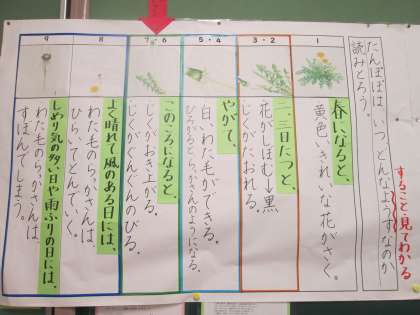 たんぽぽは、いつ、どんなようすなのか
読みとろう。
すること・見てわかる
1
春になると、
黄色いきれいな花がさく。
3・2
二、三日たつと、
花がしぼむ→黒
じくがたおれる。
5・4
やがて、
白いわた毛ができる。
ひろがるとらっかさんのようになる。
7・6
このころになると、
じくがおき上がる。
じくがぐんぐんのびる。
8
よく晴れて風のある日には、
わた毛のらっかさんは、
ひらいてとんでいく。
9
しめり気の多い日や雨ふりの日には、
わた毛のらっかさんは
すぼんでしまう。